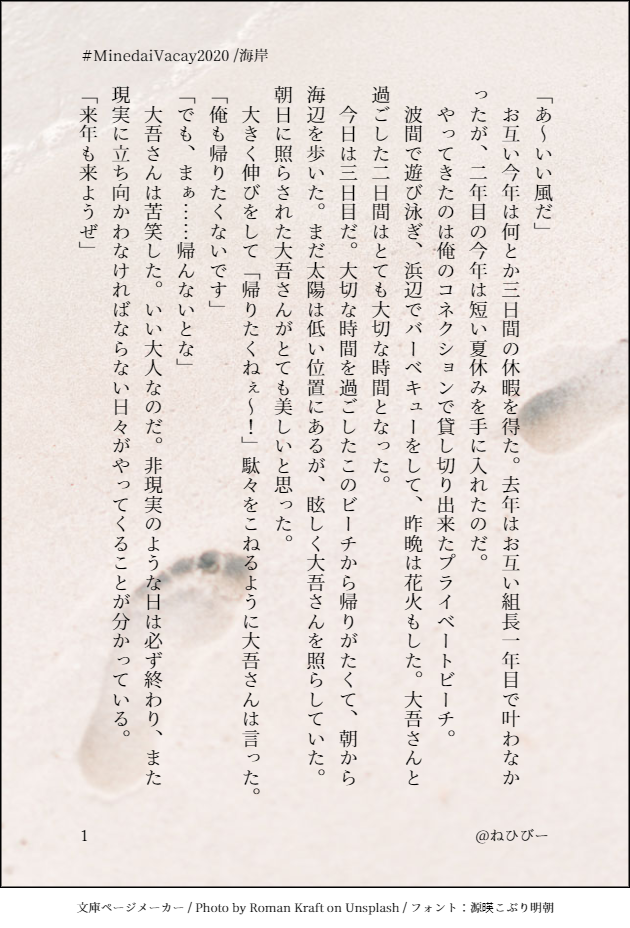 #MinedaiVacay2020 /海岸
「あ〜いい風だ」
　お互い今年は何とか三日間の休暇を得た。去年はお互い組長一年目で叶わなか
ったが、二年目の今年は短い夏休みを手に入れたのだ。
　やってきたのは俺のコネクションで貸し切り出来たプライベートビーチ。
　波間で遊び泳ぎ、浜辺でバーベキューをして、昨晩は花火もした。大吾さんと
過ごした二日間はとても大切な時間となった。
　今日は三日目だ。大切な時間を過ごしたこのビーチから帰りがたくて、朝から
海辺を歩いた。まだ太陽は低い位置にあるが、眩しく大吾さんを照らしていた。
朝日に照らされた大吾さんがとても美しいと思った。
　大きく伸びをして「帰りたくねぇ〜！」駄々をこねるように大吾さんは言った。
「俺も帰りたくないです」
「でも、まぁ……帰んないとな」
　大吾さんは苦笑した。いい大人なのだ。非現実のような日は必ず終わり、また
現実に立ち向かわなければならない日々がやってくることが分かっている。
「来年も来ようぜ」
1
@ねひびー
文庫ページメーカー / Photo by Roman Kraft on Unsplash / フォント：源暎こぶり明朝